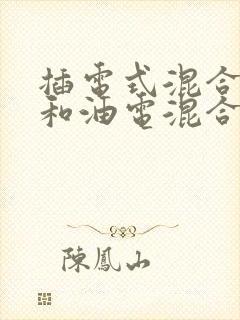 插電式混合
和油電混合
陳鳳山